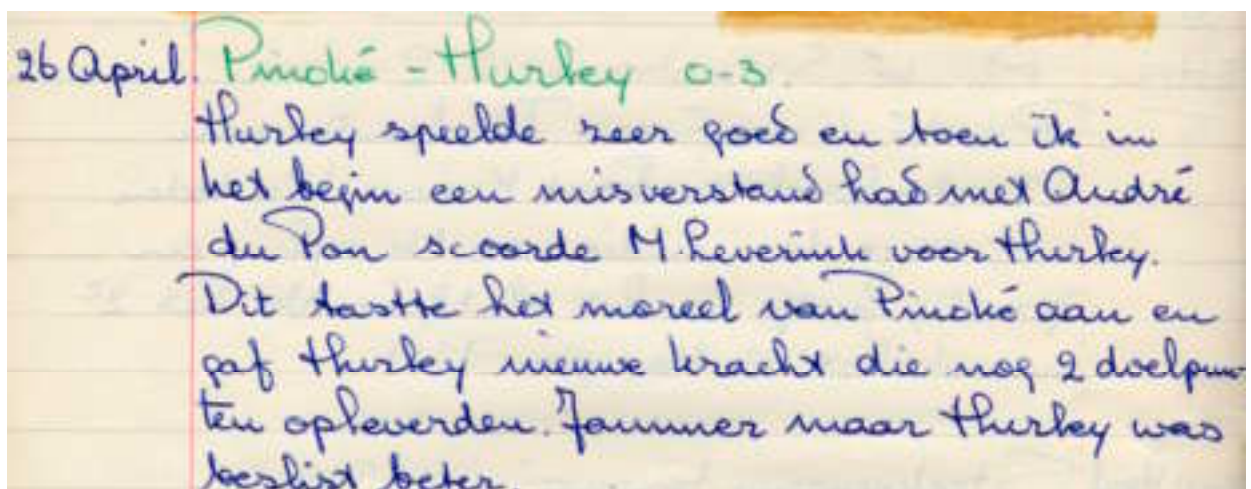 26 April. Pinoké - Hurley 0-3.
Hurley speelde zeer goed en toen ik in
het begin een misverstand had met André
du Pon scoorde M. Leverink voor Hurley.
Dit tastte het moreel van Pinoké aan en
gaf Hurley nieuwe kracht die nog 2 doelpun-
ten opleverden. Jammer maar Hurley was
beslist beter.